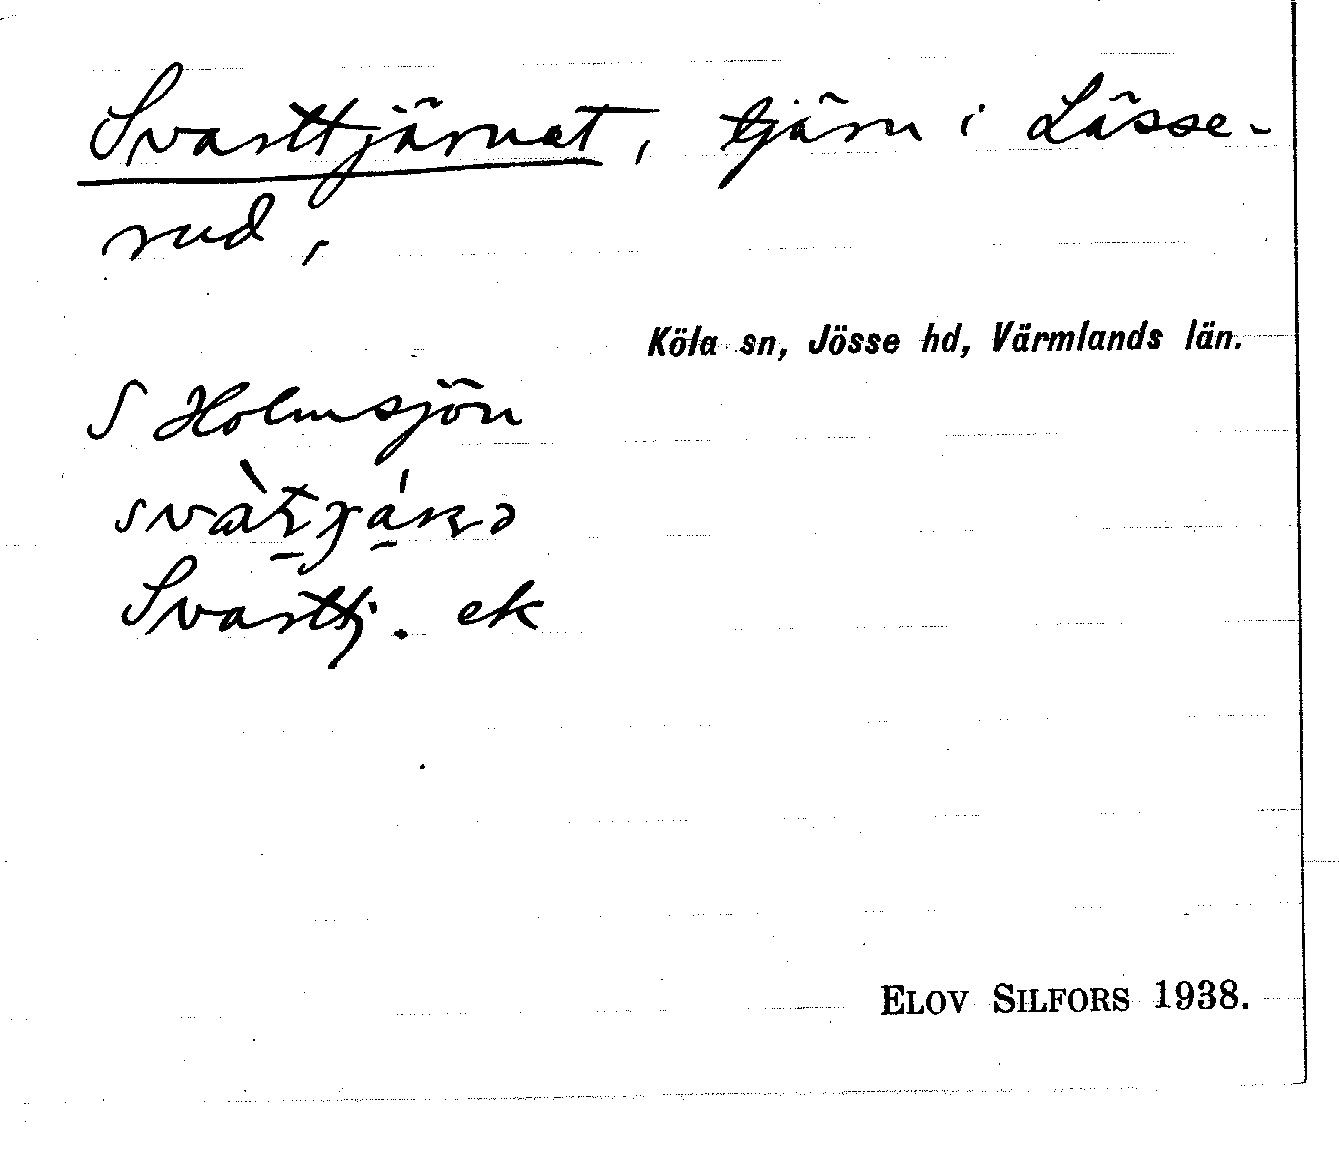 Svarttjärnet, tjärn i Lässe-
rud,
Köla sn, Jösse hd, Värmlands län.
S Holmsjön
Svarttj. ek
ELOV SILFORS 1938.